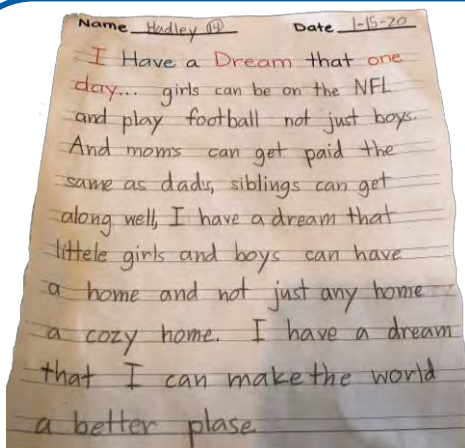 Name Hadley 14 Date 1-15-20
I Have a Dream that one
day... girls can be on the NFL
and play football not just boys.
And moms can get paid the
same as dad's, siblings can get
along well, I have a dream that
littele girls and boys can have
a home and not just any home
a cozy home. I have a dream
that I can make the world
a better plase.